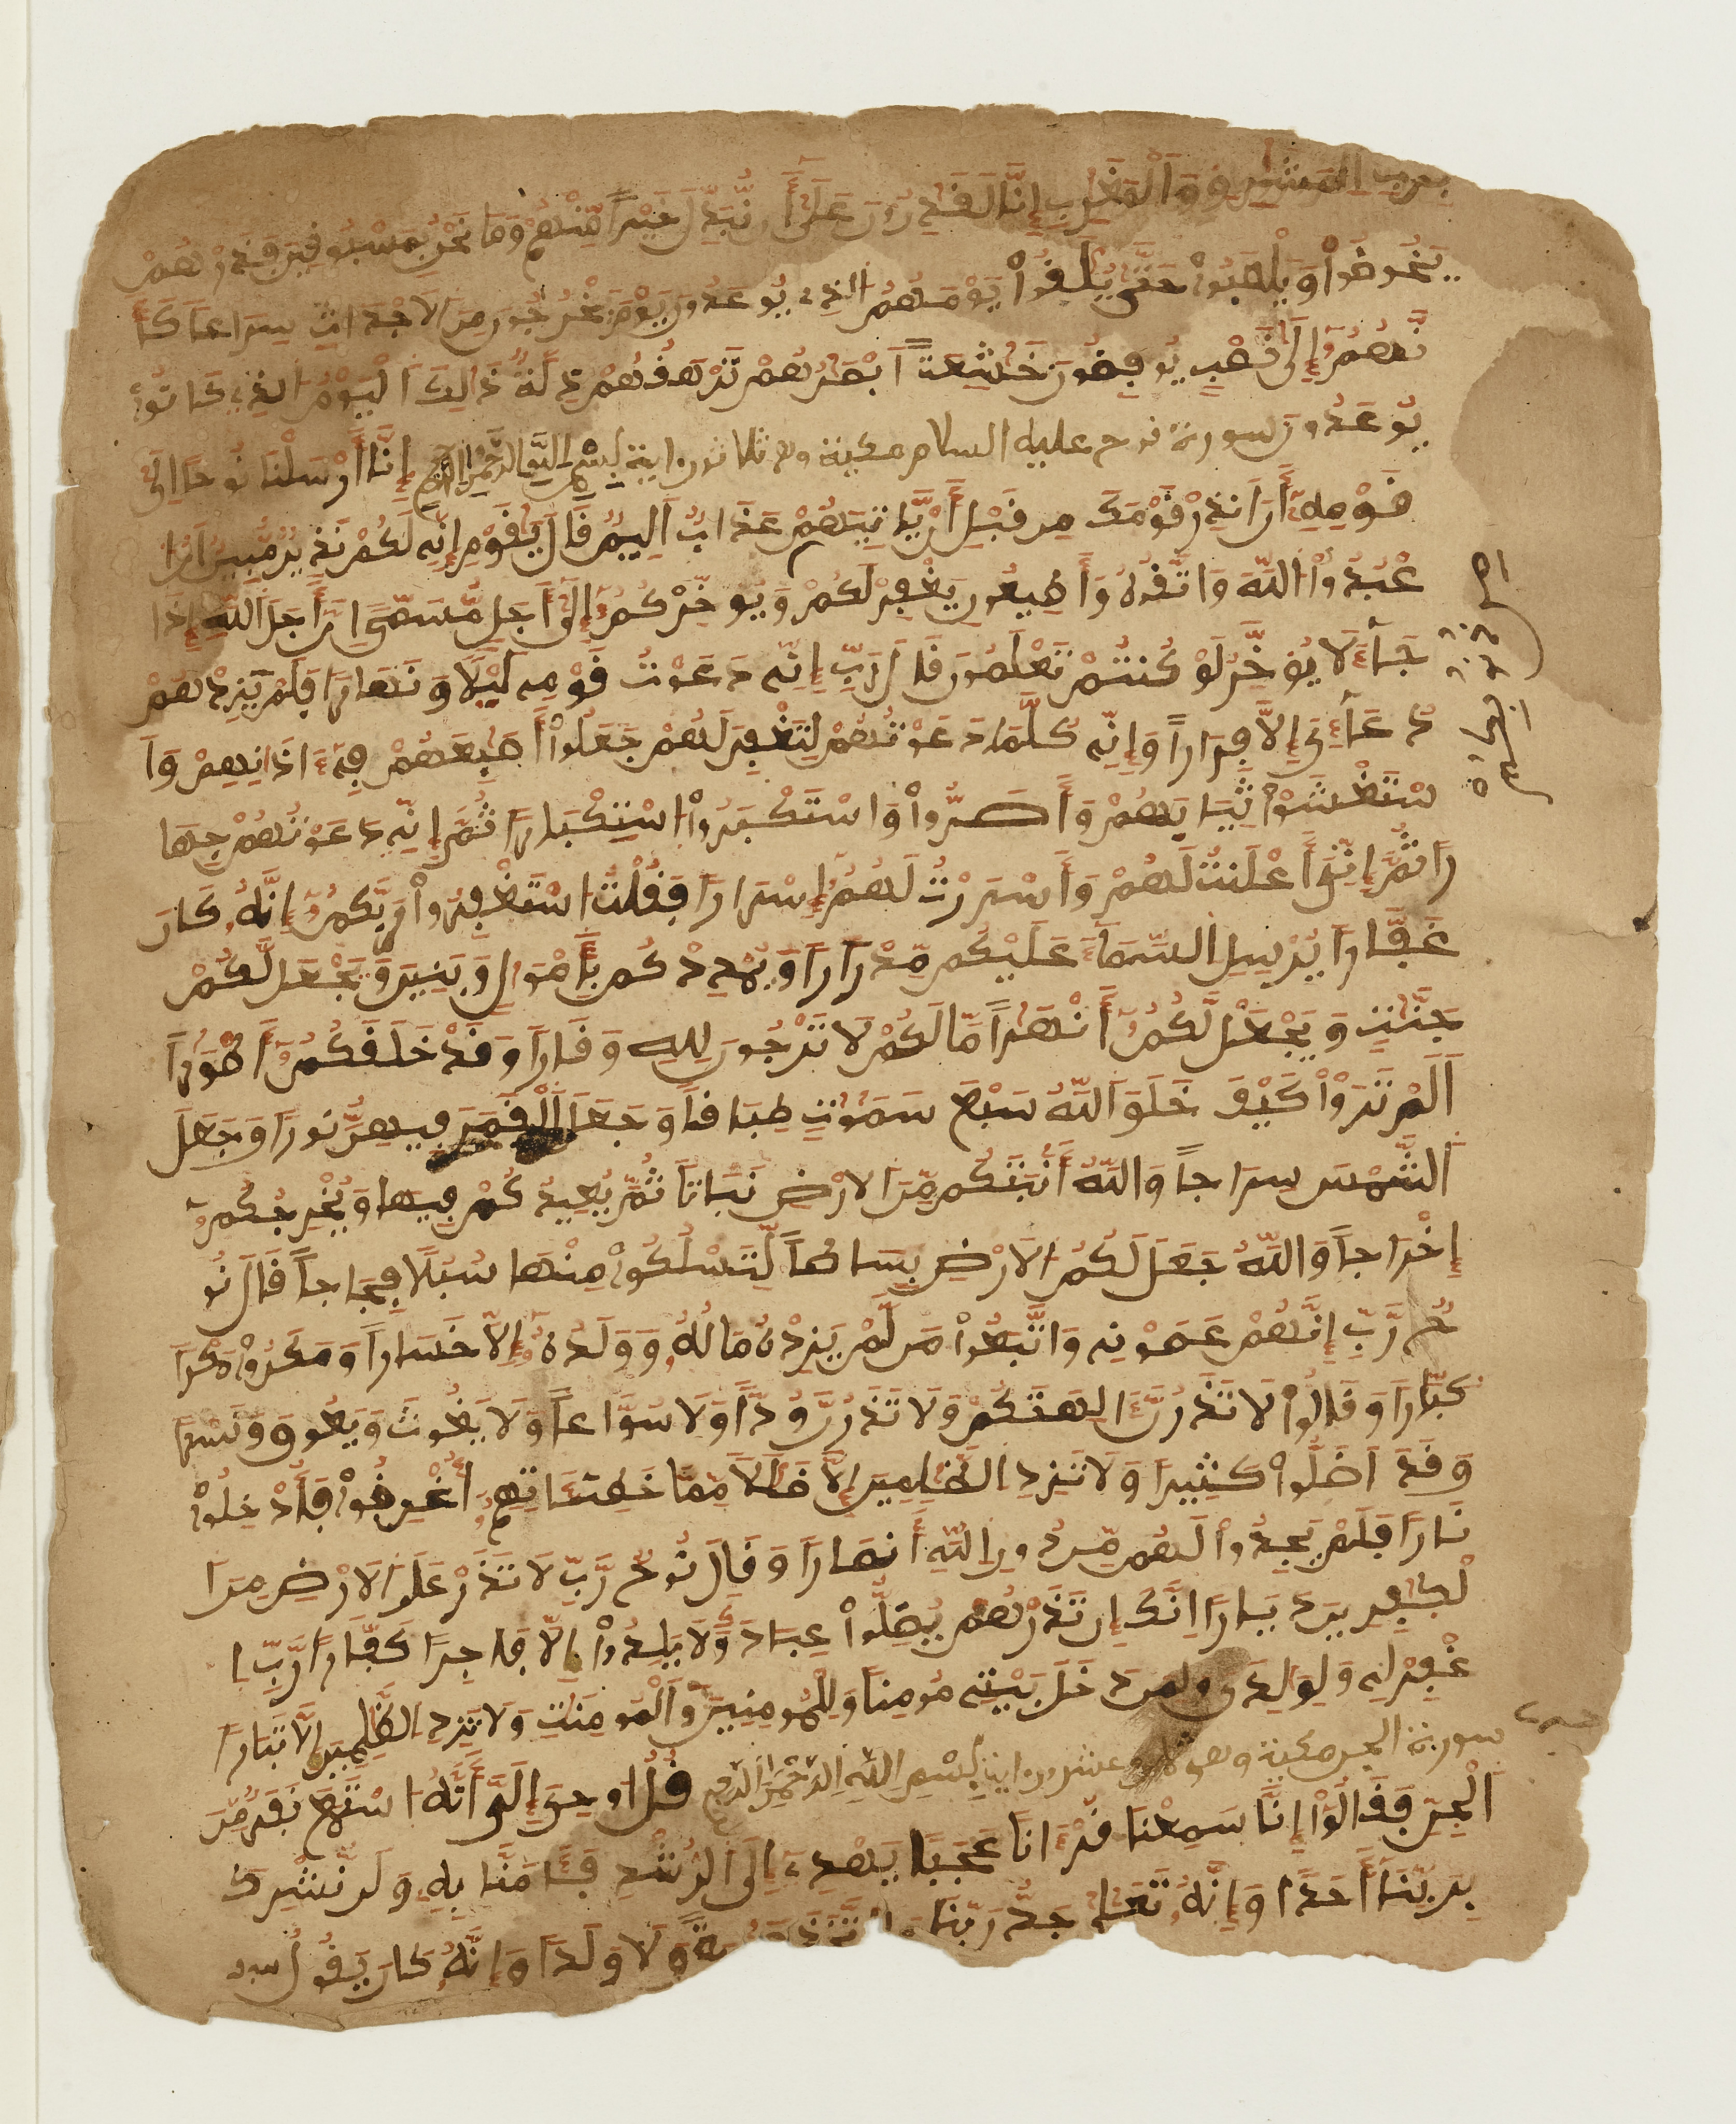 برب المشرق والمغرب إنا لقدرون على أن نبدل خيرا منهم وما نحن بمسبوقين فذرهم
يخوضوا ويلعبوا حتى يلقوا يومهم الذي يوعدون يوم يخرجون من الاجداث سراعا كأ
نهم إلى نصب يوفضون خشعة ابصرهم ترهقهم ذلة ذالك اليوم الذي كانوا
يوعدون سورة نوح عليه السلام مكية وهي ثلاثون اية بسم الله الرحمن الرحيم إنا أرسلنا نوحا الى
قومه أن انذر قومك من قبل أن ياتيهم عذاب اليم قال يقوم إنه لكم نذير مبين ان ا
عبدوا الله واتقوه وأطيعون يغفر لكم ويوخركم إلى أجل مسمى ان أجل الله إذا
جاء لا يوخر لو كنتم تعلمون قال رب إنه دعوت قومه ليلا ونهارا فلم يزدهم
دعاءى إلا فرارا وإنه كلما دعوتهم لتغفر لهم جعلوا أصبعهم في ءاذانهم وا
ستغشوا ثيابهم وأصروا واستكبروا استكبارا ثم إنه دعوتهم جها
را ثم إني أعلنت لهم وأسررت لهم إسرارا فقلت استغفروا ربكم إنه كان
غفارا يرسل السماء عليكم مدرارا ويمددكم بأمول وبنين ويجعل لكم
جنت ويجعل لكم أنهرا ما لكم لا ترجون لله وقارا وقد خلقكم أطورا
الم تروا كيف خلق الله سبع سموت طباقا وجعل القمر فيهن نورا وجعل
الشمس سراجا والله أنبتكم من الارض نباتا ثم يعيدكم فيها ويخرجكم
إخراجا والله جعل لكم الارض بساطا لتسلكوا منها سبلا فجاجا قال نو
ح رب إنهم عصونه واتبعوا من لم يزده ماله وولده إلا خسارا ومكروا مكرا
كبارا وقالوا لا تذرن ءالهتكم ولا تذرن ودا ولا سواعا ولا يغوث ويعوق ونسرا
وقد اضلوا كثيرا ولا تزد الظلمين إلا ضلالا مما خطيئاتهم أغرقوا فأدخلوا
نارا فلم يجدوا لهم من دون الله أنصارا وقال نوح رب لا تذر على الارض من ا
لكفرين ديارا انك إن تذرهم يضلوا عبادك ولا يلدوا إلا فاجرا كفارا رب ا
غفر له ولولدى ولمن دخل بيته مومنا وللمومنين والمومنت ولا تزد الظلمين إلا تبارا
سورة الجن مكية وهي ثمان وعشرون اية بسم الله الرحمن الرحيم قل اوحي إلي أنه استمع نفر من
الجن فقالوا إنا سمعنا قرءانا عجبا يهدي إلى الرشد فئامنا به ولن نشرك
بربنا أحدا وإنه تعلى جد ربنا ما اتخذ صحبة ولا ولدا وإنه كان يقول